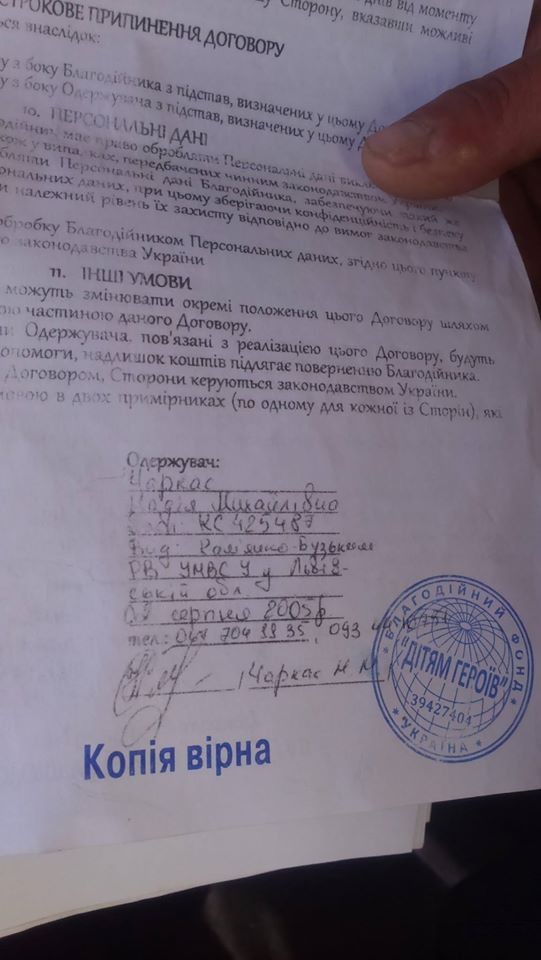 днів від моменту
Сторону, вказавши можливі
СТРОКОВЕ ПРИПИНЕННЯ ДОГОВОРУ
ся внаслідок:
у з боку Благодійника з підстав, визначених у цьому
у з боку Одержувача з підстав, визначених у цьому
10. ПЕРСОНАЛЬНІ ДАНІ
має право обробляти Персональні дані
у випадках, передбачених чинним законодавством
Персональні дані Благодійника, забезпечуючи
даних, при цьому зберігаючи конфіденційність і безпеку
и належний рівень їх захисту відповідно до вимог законодавства
обробку Благодійником Персональних даних, згідно цього пункту
законодавства України
11. ІНШІ УМОВИ
можуть змінювати окремі положення цього Договору шляхом
ою частиною даного Договору.
ти Одержувача, пов'язані з реалізацією цього Договору, будуть
опомоги, надлишок коштів підлягає поверненню Благодійника.
Договором, Сторони керуються законодавством України.
мовою в двох примірниках (по одному для кожної із Сторін), які
Одержувач:
Чаркас
Надія Михайлівна
КС 425487
Вид: Кам'янко-Бузьким
РВ УМВС У у Львів-
ській обл.
серпня 2005р.
тел.: 093
Чаркас Н М
БЛАГОДІЙНИЙ ФОНД
"ДІТЯМ ГЕРОЇВ"
39427404
УКРАЇНА
Копія вірна